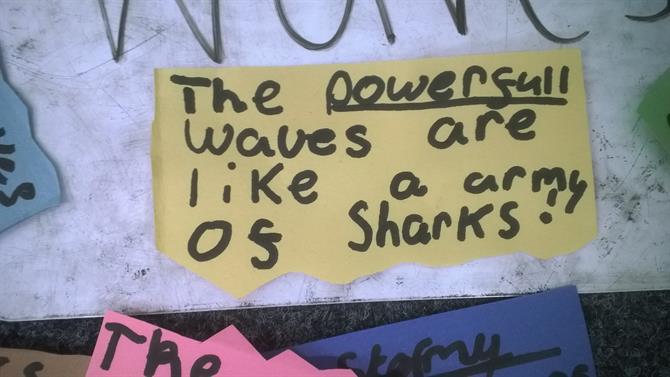 The powerfull
waves are
like a army
of Sharks!
The
Stormy